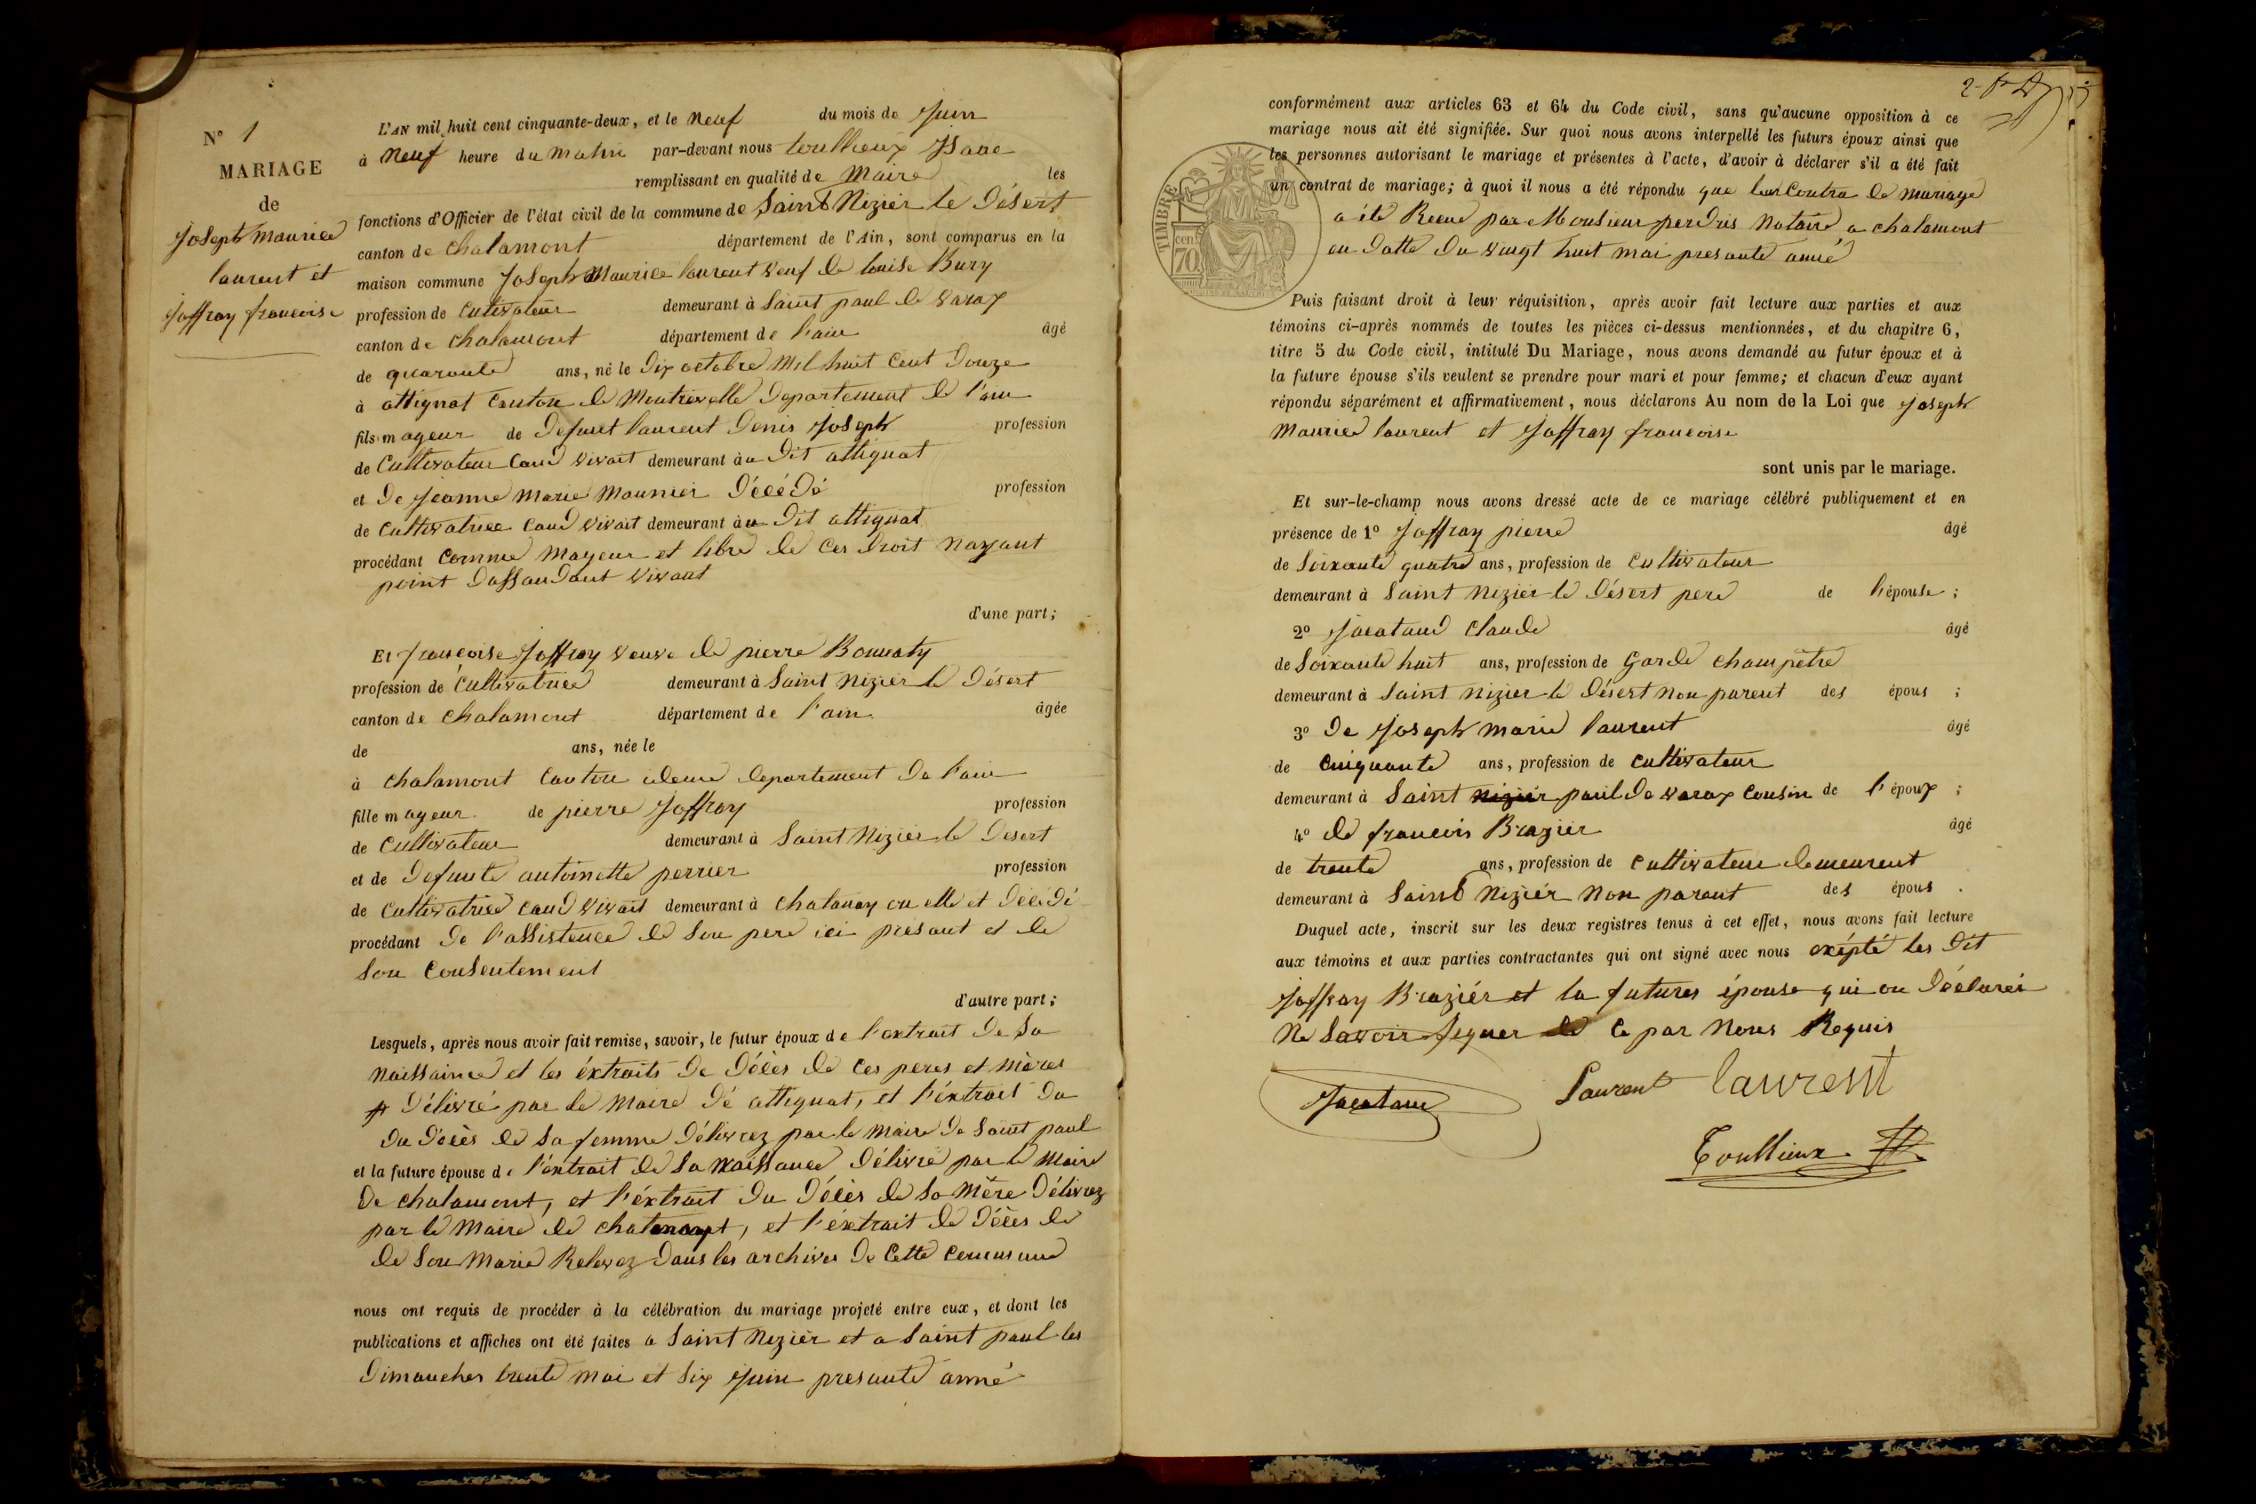 N° 1
MARIAGE
de
Joseph Maurice
laurent et
Joffray francoise
L'AN mil huit cent cinquante-deux, et le neuf du mois de Juin
à Neuf heure du matin par-devant nous toullieux Isaac
remplissant en qualité de Maire les
fonctions d'Officier de l'état civil de la commune de Saint Nizier le Désert
canton de Chalamont département de l'Ain, sont comparus en la
maison commune Joseph Maurice laurent veuf de louise Bury
profession de Cultivateur demeurant à Saint paul de varax
canton de Chalamont département de l'ain âgé
de quarante ans, né le Dix octobre Mil huit Cent Douze
à attignat Canton de Montrevelle Departement de l'ain
fils mageur de Defunt laurent Denis Joseph profession
de Cultivateur Cand vivait demeurant à u Dit attignat
et De Jeanne Marie Mounier Décédé profession
de Cultivatrice Cand vivait demeurant à u Dit attignat
procédant Comme Mageur et libre de Ces Droit Nayant
point Dassandant vivant
d'une part;
Et francoise Joffray veuve de pierre Bonnaty
profession de Cultivatrice demeurant à Saint Nizier le Désert
canton de Chalamont département de l'ain âgée
de ans, née le
à Chalamont Canton idem departement De l'ain
fille mageur de pierre Joffray profession
de Cultivateur demeurant à Saint Nizier le Desert
et de Defunte antoinette perrier profession
de Cultivatrice Cand vivait demeurant à Chatenay ou elle et Décédé
procédant De l'assistence de Son pere ici présant et de
Son Consentement
d'autre part;
Lesquels, après nous avoir fait remise, savoir, le futur époux de l'extrait De Sa
Naissaince et les éxtraits De Décès de Ces peres et Mères
Délivré par le Maire Dé attignat, et l'éxtrait Du
Du Décès de Sa femme Délivrez par le Maire De Saint paul
et la future épouse de l'éxtrait de Sa Naissance Délivré par le Maire
De Chalamont, et l'éxtrait Du Décès de Sa Mère Délivrez
par le Maire de Chatenay, et l'éxtrait de Décès de
de Son Marie Relevez Dans les archives De Cette Commune
nous ont requis de procéder à la célébration du mariage projeté entre eux, et dont les
publications et affiches ont été faites a Saint Nizier et a Saint paul les
Dimanches trente mai et Six Juin presante anné
conformément aux articles 63 et 64 du Code civil, sans qu'aucune opposition à ce
mariage nous ait été signifiée. Sur quoi nous avons interpellé les futurs époux ainsi que
les personnes autorisant le mariage et présentes à l'acte, d'avoir à déclarer s'il a été fait
un contrat de mariage; à quoi il nous a été répondu que leur Contra de Mariage
a été Recue par Monsieur perdrix Notaire a Chalamont
en Datte Du vingt huit mai presante anné
TIMBRE
cent
70
Puis faisant droit à leur réquisition, après avoir fait lecture aux parties et aux
témoins ci-après nommés de toutes les pièces ci-dessus mentionnées, et du chapitre 6,
titre 5 du Code civil, intitulé Du Mariage, nous avons demandé au futur époux et à
la future épouse s'ils veulent se prendre pour mari et pour femme; et chacun d'eux ayant
répondu séparément et affirmativement, nous déclarons Au nom de la Loi que Joseph
Maurice laurent et Joffray francoise
sont unis par le mariage.
Et sur-le-champ nous avons dressé acte de ce mariage célébré publiquement et en
présence de 1° Joffray pierre âgé
de Soixante quatre ans, profession de Cultivateur
demeurant à Saint Nizier le Désert pere de l'épouse;
2° Jacatand Claude âgé
de Soixante huit ans, profession de Garde Champêtre
demeurant à Saint Nizier le Désert Non parent des épous;
3° De Joseph Marie laurent âgé
de Cinquante ans, profession de Cultivateur
demeurant à Saint Nizier paul De varax Cousin de l'époux;
4° de francois Brazier âgé
de trente ans, profession de Cultivateur demeurent
demeurant à Saint Nizier Non parent des épous.
Duquel acte, inscrit sur les deux registres tenus à cet effet, nous avons fait lecture
aux témoins et aux parties contractantes qui ont signé avec nous exépté les Dit
Joffray Braziér et la futures épouse qui on Déclarér
Ne Savoir Signer de Ce par Nous Requis
Jacatand Laurent laurent
Toullieux